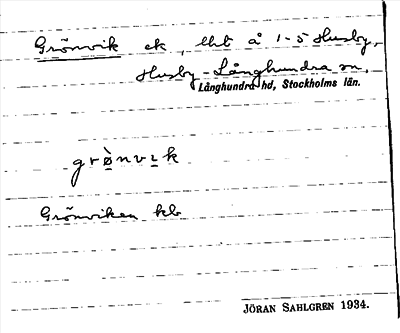 Grönvik ek, lht å 1-5 Husby,
Husby-Långhundra sn,
Långhundra hd, Stockholms län.
grö̀nvɩk
Grönviken klb
JÖRAN SAHLGREN 1934.